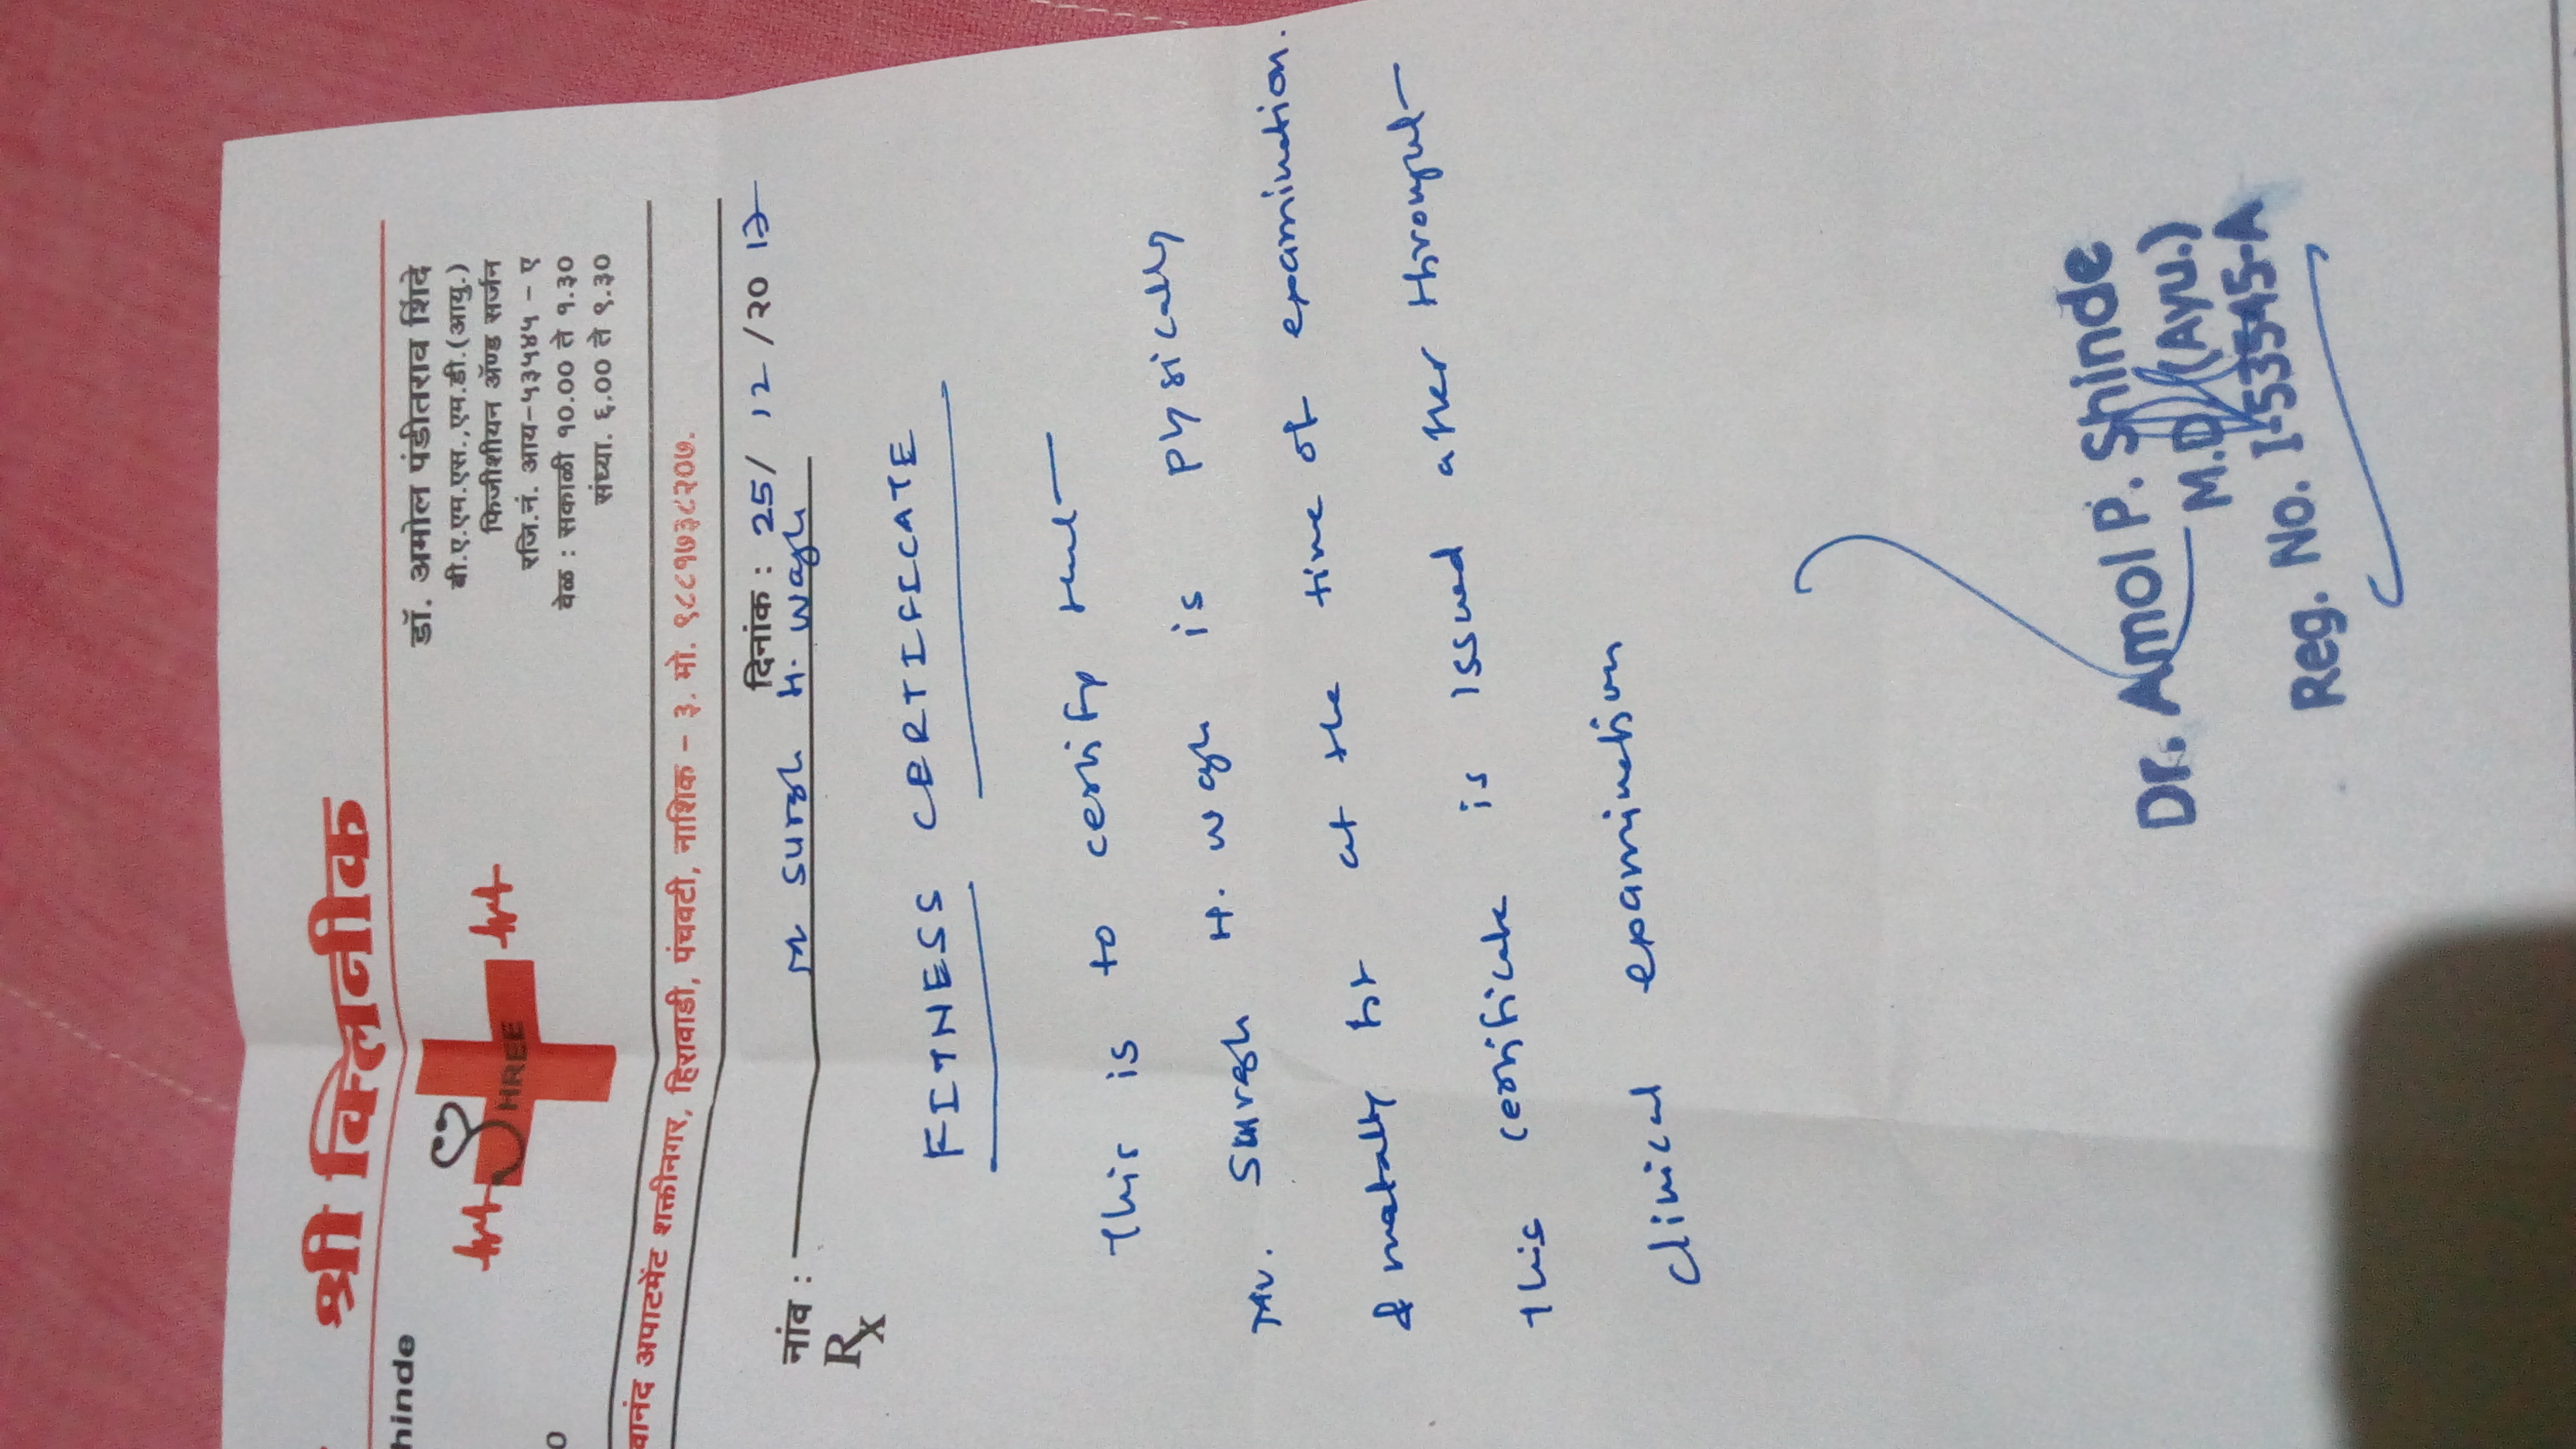 श्री क्लिनीक
hinde
HREE
डॉ. अमोल पंडीतराव शिंदे
बी.ए.एम.एस.,एम.डी.(आयु.)
फिजीशीयन ॲण्ड सर्जन
रजि.नं. आय-५३५४५ - ए
वेळ : सकाळी १०.०० ते १.३०
संध्या. ६.०० ते ९.३०
वानंद अपाटमेंट शक्तीनगर, हिरावाडी, पंचवटी, नाशिक - ३. मो. ९८८१७३८२०७.
दिनांक : 25/12/२०17
नांव : Mr Suresh H. Wagh
Rx
FITNESS CERTIFICATE
This is to certify that
Mr. Suresh H. Wagh is physically
& mentally fit at the time of examination.
This certificate is issued after through
clinical examination
Dr. Amol P. Shinde
M.D. (Ayu.)
Reg. No. I-53545-A